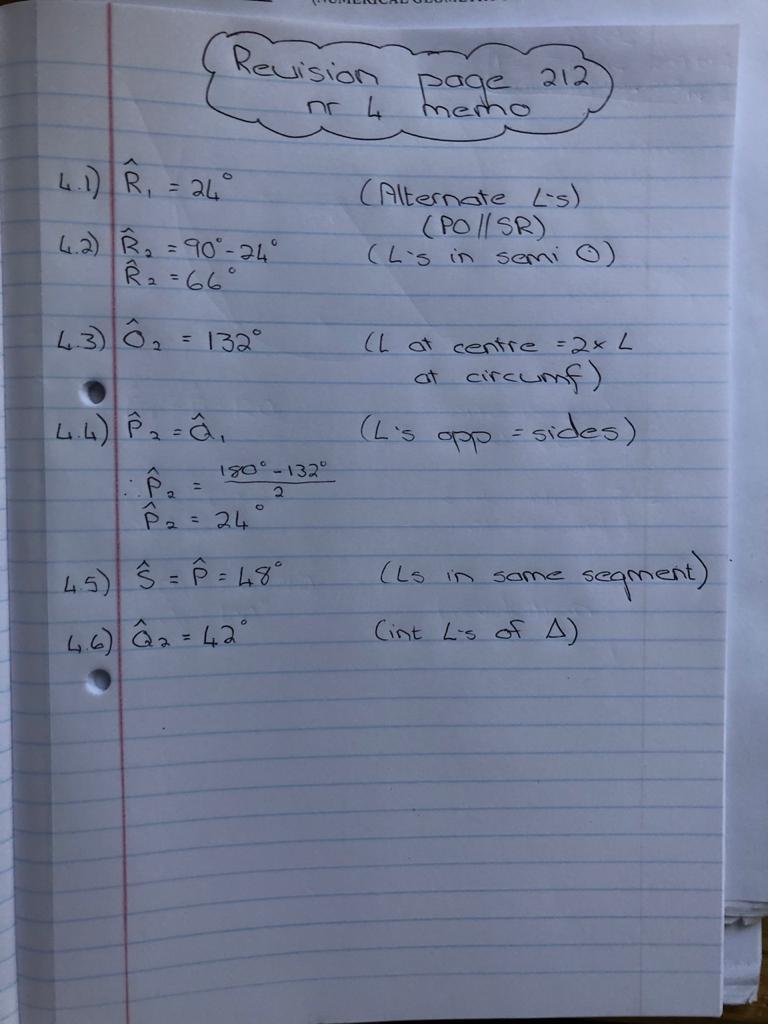 Revision page 212
nr 4 memo
4.1) R̂₁ = 24° (Alternate ∠'s)
(PO//SR)
4.2) R̂₂ = 90° - 24° (∠'s in semi ⊙)
R̂₂ = 66°
4.3) Ô₂ = 132° (∠ at centre = 2x ∠
at circumf)
4.4) P̂₂ = Q̂₁ (∠'s opp = sides)
∴ P̂₂ = 180° - 132° / 2
P̂₂ = 24°
4.5) Ŝ = P̂ = 48° (∠s in same segment)
4.6) Q̂₂ = 42° (int ∠'s of Δ)